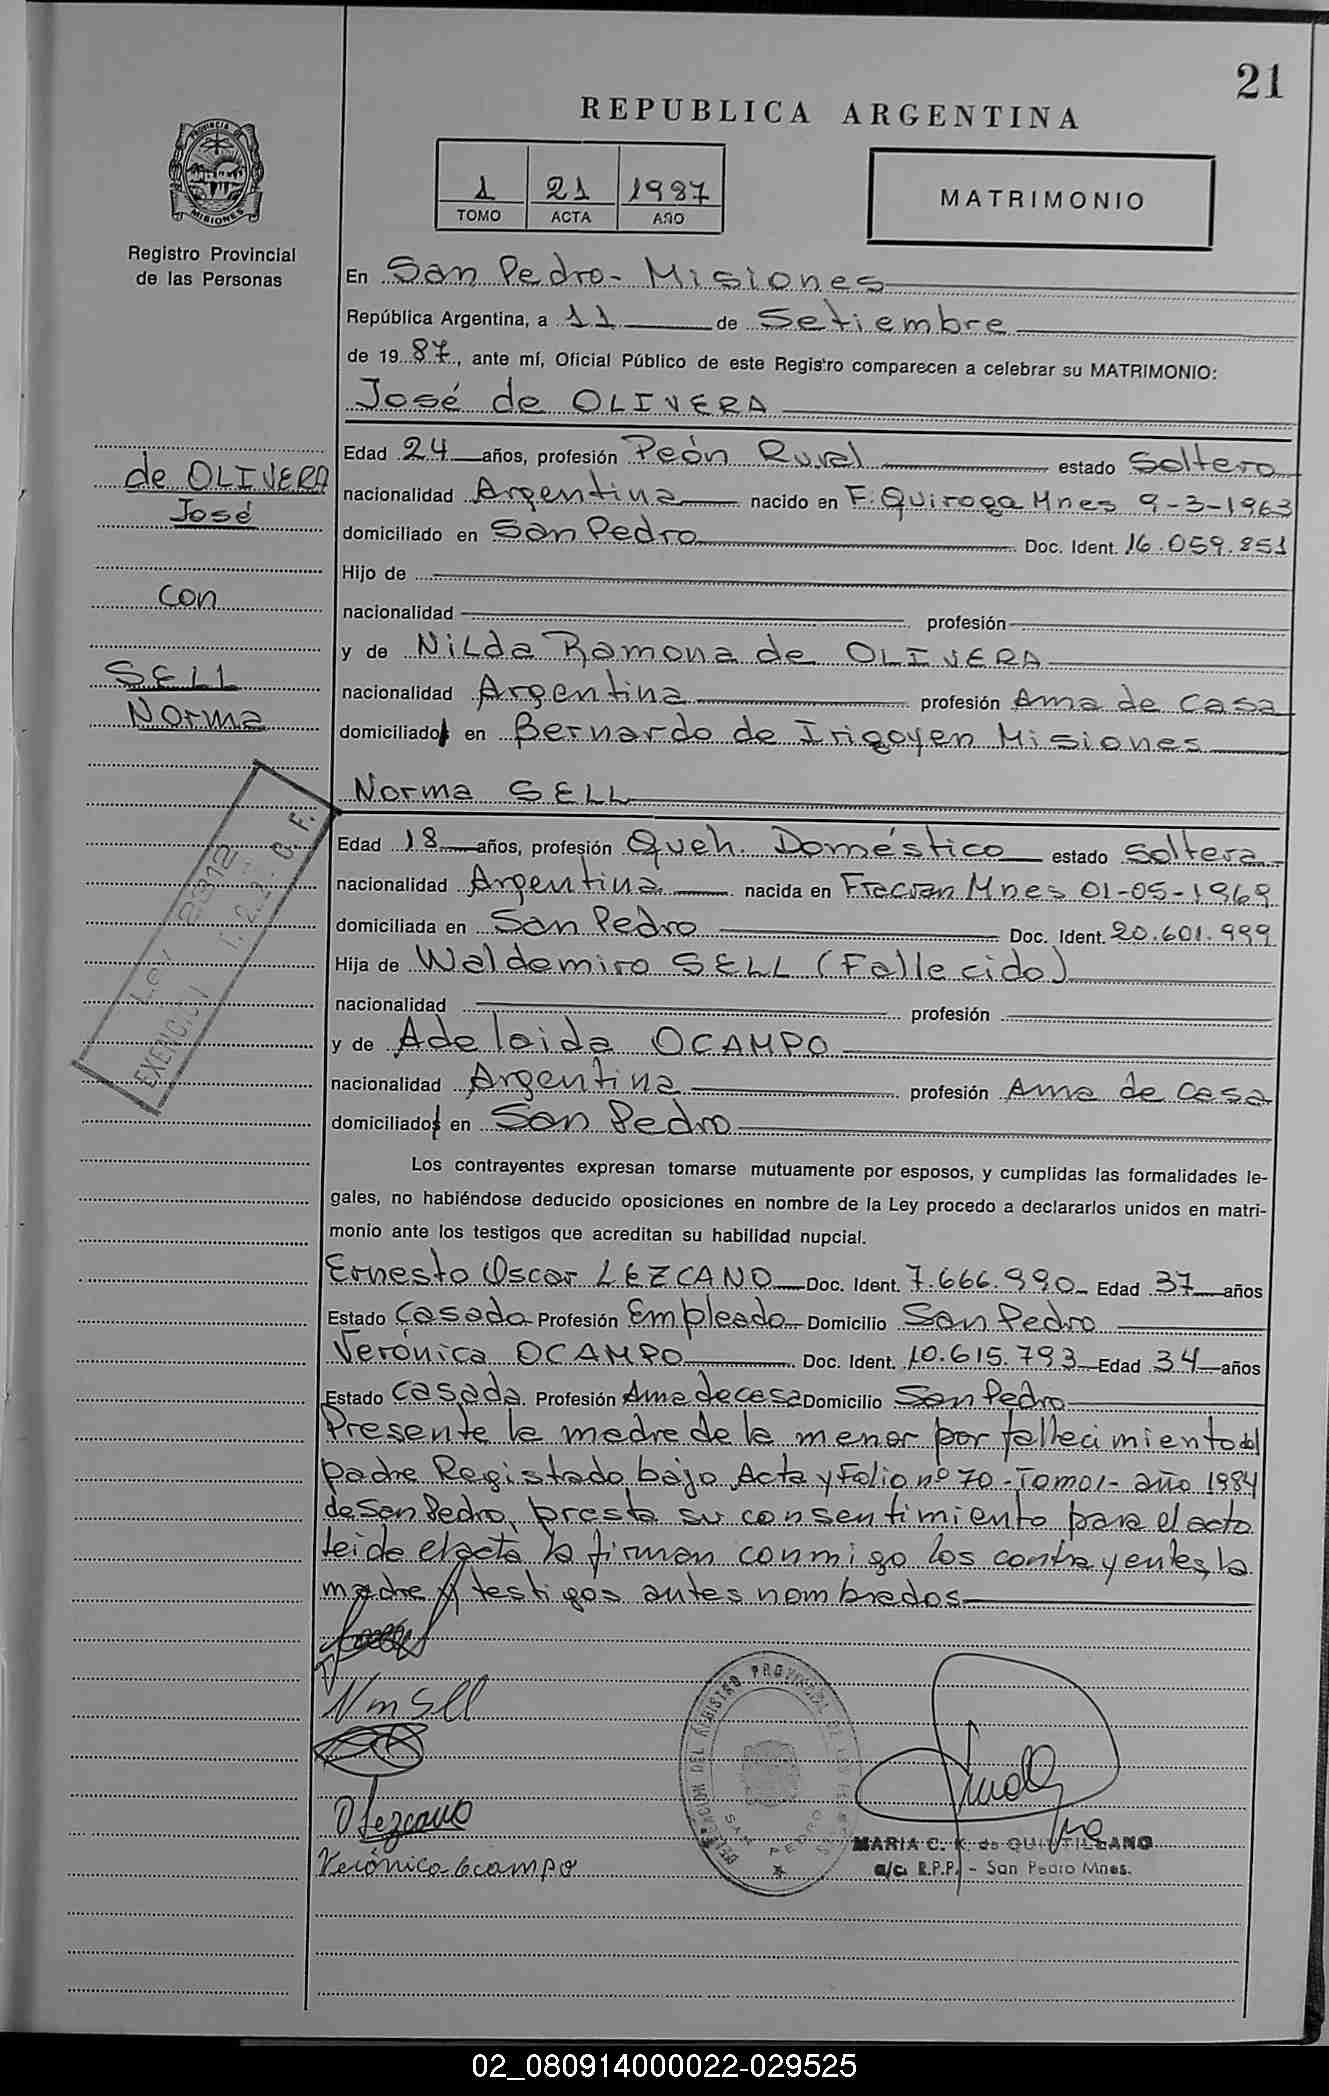 21
REPUBLICA ARGENTINA
1 21 1987
TOMO ACTA AÑO
MATRIMONIO
PROVINCIA DE
MISIONES
Registro Provincial
de las Personas
En San Pedro - Misiones
República Argentina, a 11 de Setiembre
de 19 87, ante mí, Oficial Público de este Registro comparecen a celebrar su MATRIMONIO:
José de OLIVERA
Edad 24 años, profesión Peón Rural estado Soltero
nacionalidad Argentina nacido en F. Quiroga Mnes 9-3-1963
domiciliado en San Pedro Doc. Ident. 16.059.851
Hijo de
nacionalidad profesión
y de Nilda Ramona de OLIVERA
nacionalidad Argentina profesión Ama de casa
domiciliados en Bernardo de Irigoyen Misiones
de OLIVERA
José
con
SELL
Norma
Norma SELL
Edad 18 años, profesión Queh. Doméstico estado Soltera
nacionalidad Argentina nacida en Fracran Mnes 01-05-1969
domiciliada en San Pedro Doc. Ident. 20.601.999
Hija de Waldemiro SELL (Fallecido)
nacionalidad profesión
y de Adelaida OCAMPO
nacionalidad Argentina profesión Ama de casa
domiciliados en San Pedro
EXENCION
Ley 2312
Los contrayentes expresan tomarse mutuamente por esposos, y cumplidas las formalidades le-
gales, no habiéndose deducido oposiciones en nombre de la Ley procedo a declararlos unidos en matri-
monio ante los testigos que acreditan su habilidad nupcial.
Ernesto Oscar LEZCANO Doc. Ident. 7.666.990 Edad 37 años
Estado Casado Profesión Empleado Domicilio San Pedro
Verónica OCAMPO Doc. Ident. 10.615.793 Edad 34 años
Estado Casada Profesión Ama de casa Domicilio San Pedro
Presente la madre de la menor por fallecimiento del
padre Registado bajo Acta y Folio nº 70 - Tomo 1 - año 1984
de San Pedro, presta su consentimiento para el acto
leida el acta la firman conmigo los contrayentes, la
madre y testigos antes nombrados
Nm Sell
O Lezcano
Verónica Ocampo
DELEGACION DEL REGISTRO PROVINCIAL DE LAS PERSONAS
SAN PEDRO
MARIA C. K. de QUINTILLANO
a/c. R.P.P. - San Pedro Mnes.
02_080914000022-029525